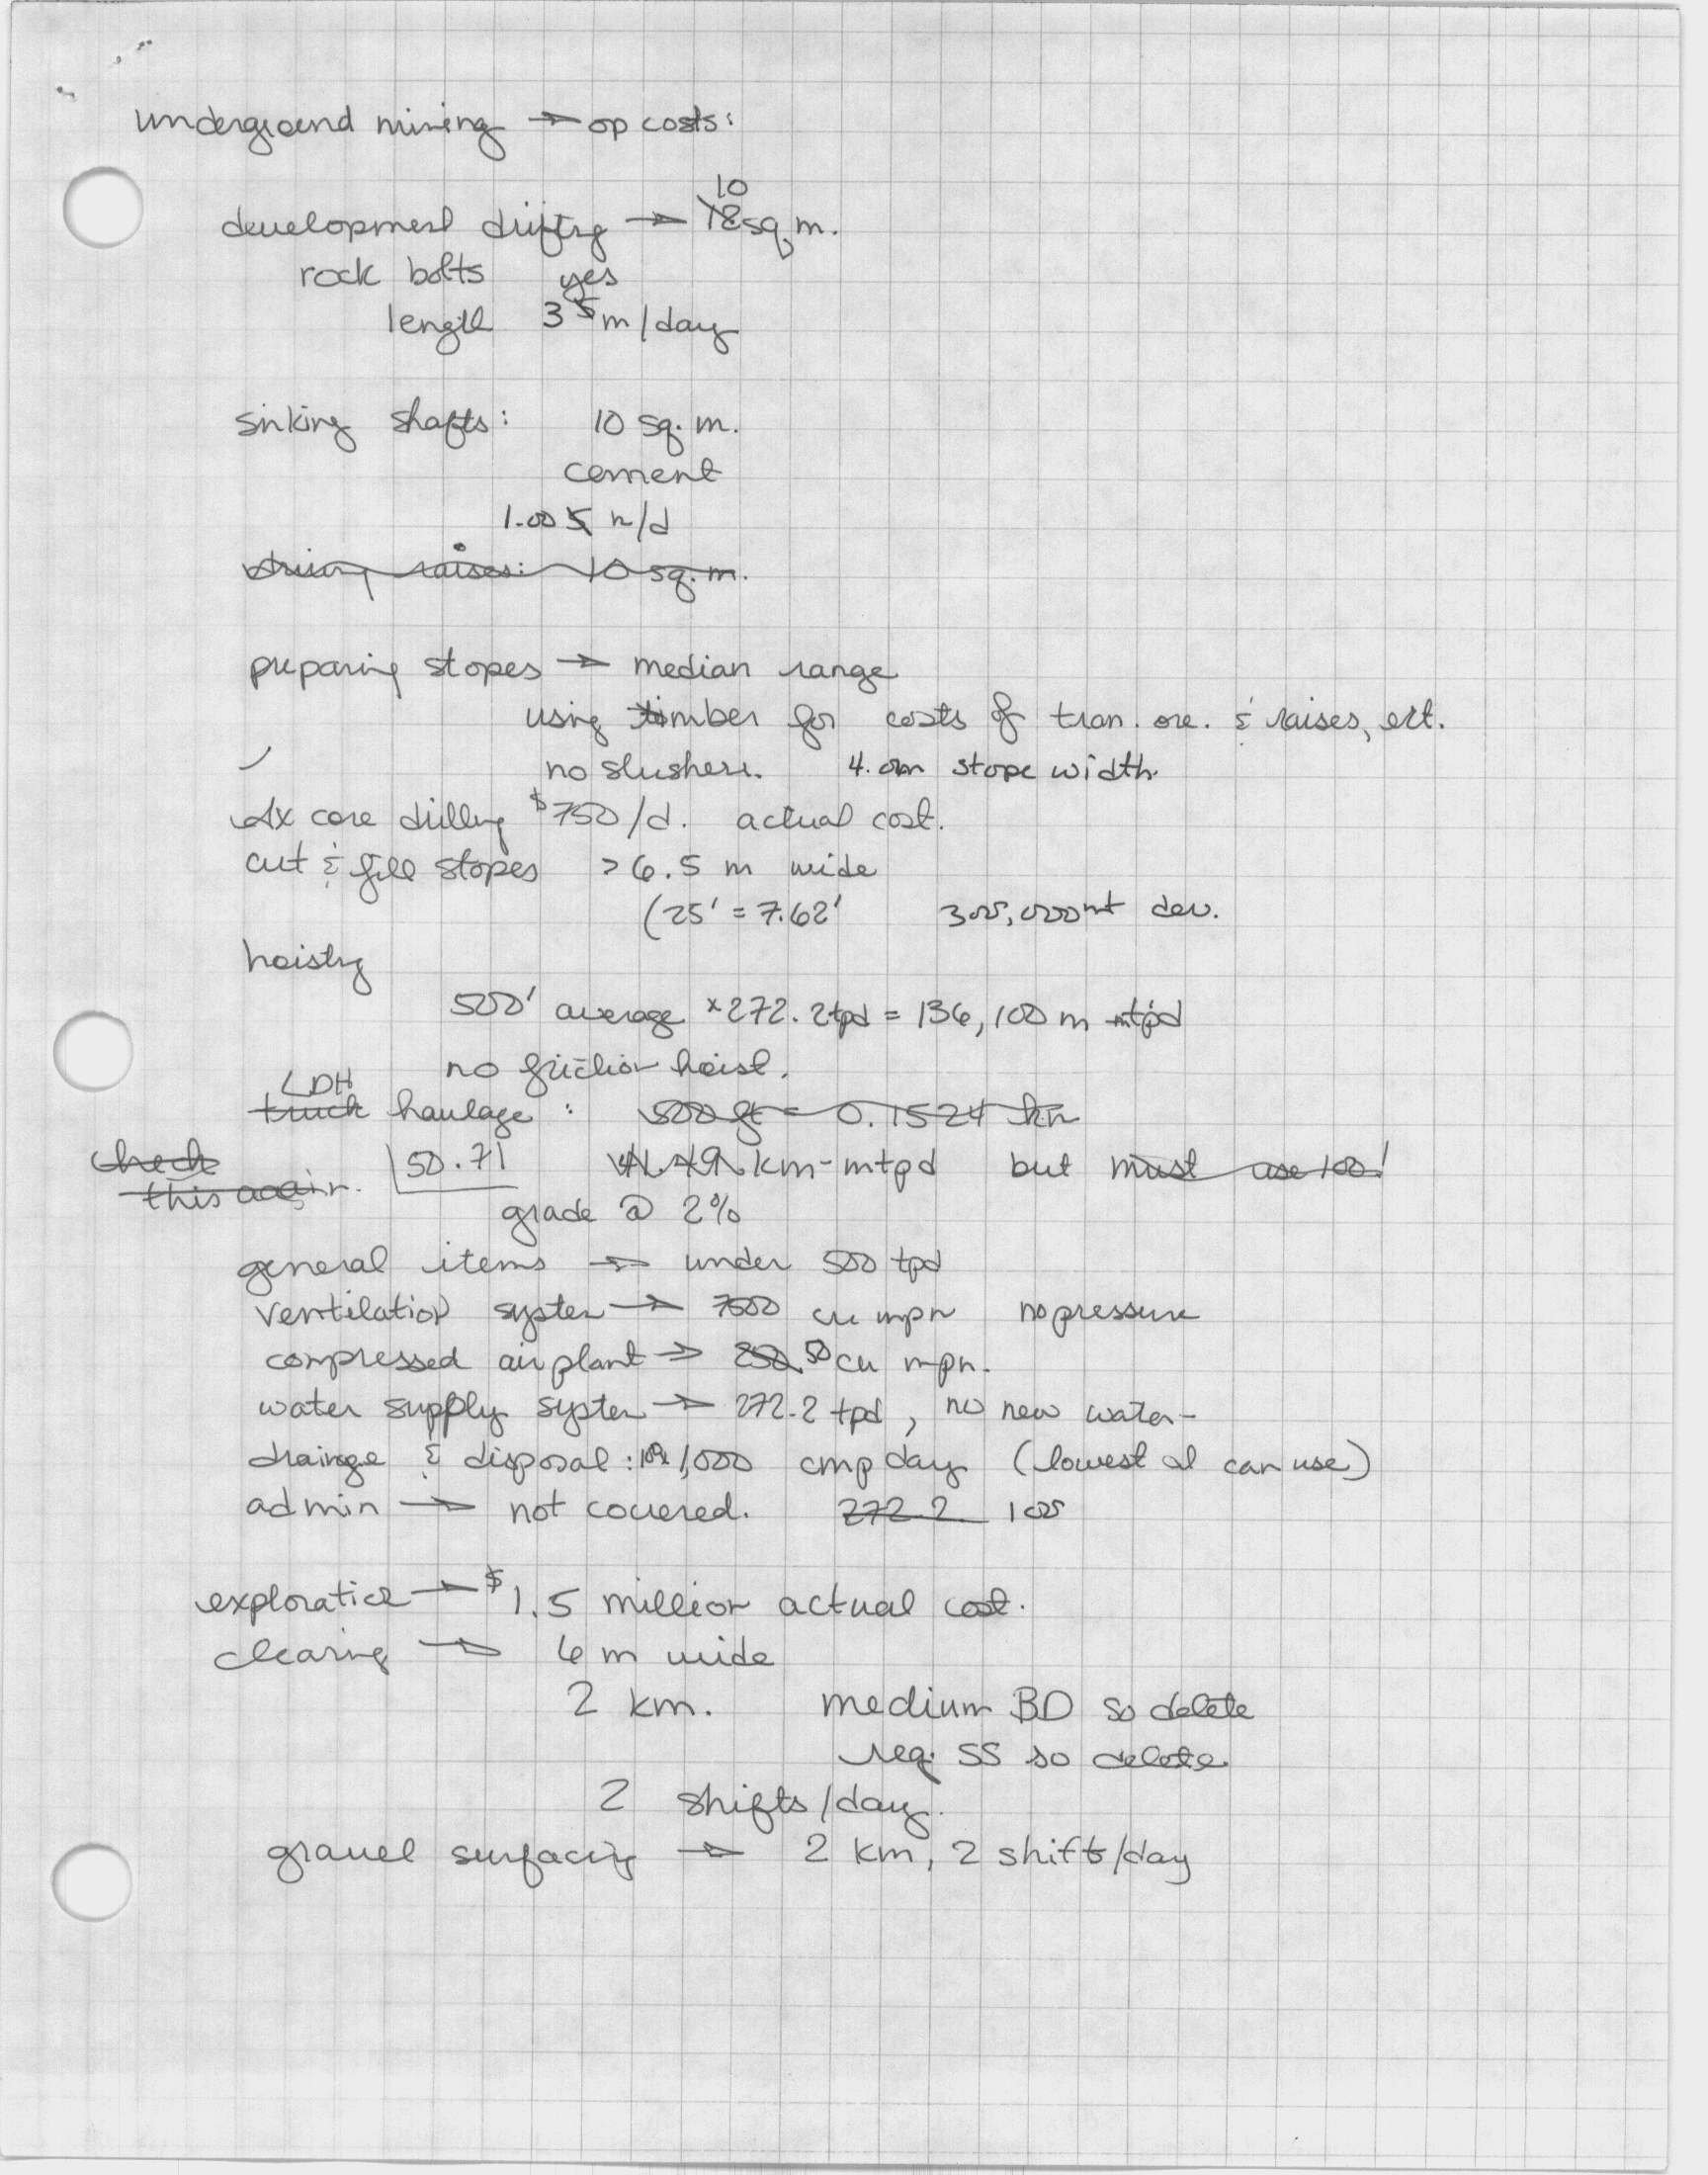 underground mining → op costs:
10
development drifting → 18 sq. m.
rock bolts yes
length 3 5 m/day
sinking shafts: 10 sq. m.
cement
1.00 5 m/d
driving raises: 10 sq. m.
preparing stopes → median range
using timber for costs of tran. ore. & raises, ect.
no slushers. 4.0m stope width.
Ax core drilling $750/d. actual cost.
cut & fill stopes > 6.5 m wide
(25' = 7.62' 300,000 mt dev.
hoisting
500' average x 272.2 tpd = 136,100 m mtpd
no friction hoist.
LDH
truck haulage: 500 ft = 0.1524 km
check 50.71 km-mtpd but must use 100!
this again.
grade @ 2%
general items → under 500 tpd
ventilation system → 7500 cu mpm no pressure
compressed air plant → 250 50 cu mpm.
water supply system → 272.2 tpd, no new water-
drainge & disposal: 1,000 cmp day (lowest I can use)
admin → not covered. 272.2 100
exploration → $1.5 million actual cost.
clearing → 6 m wide
2 km. medium BD so delete
req. SS so delete.
2 shifts/day.
gravel surfacing → 2 km, 2 shift/day